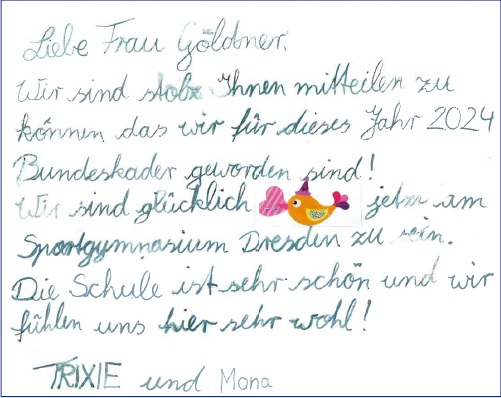 Liebe Frau Göldner.
Wir sind stolz Ihnen mitteilen zu
können das wir für dieses Jahr 2024
Bundeskader geworden sind!
Wir sind glücklich jetzt am
Sportgymnasium Dresden zu sein.
Die Schule ist sehr schön und wir
fühlen uns hier sehr wohl!
TRIXIE und Mona